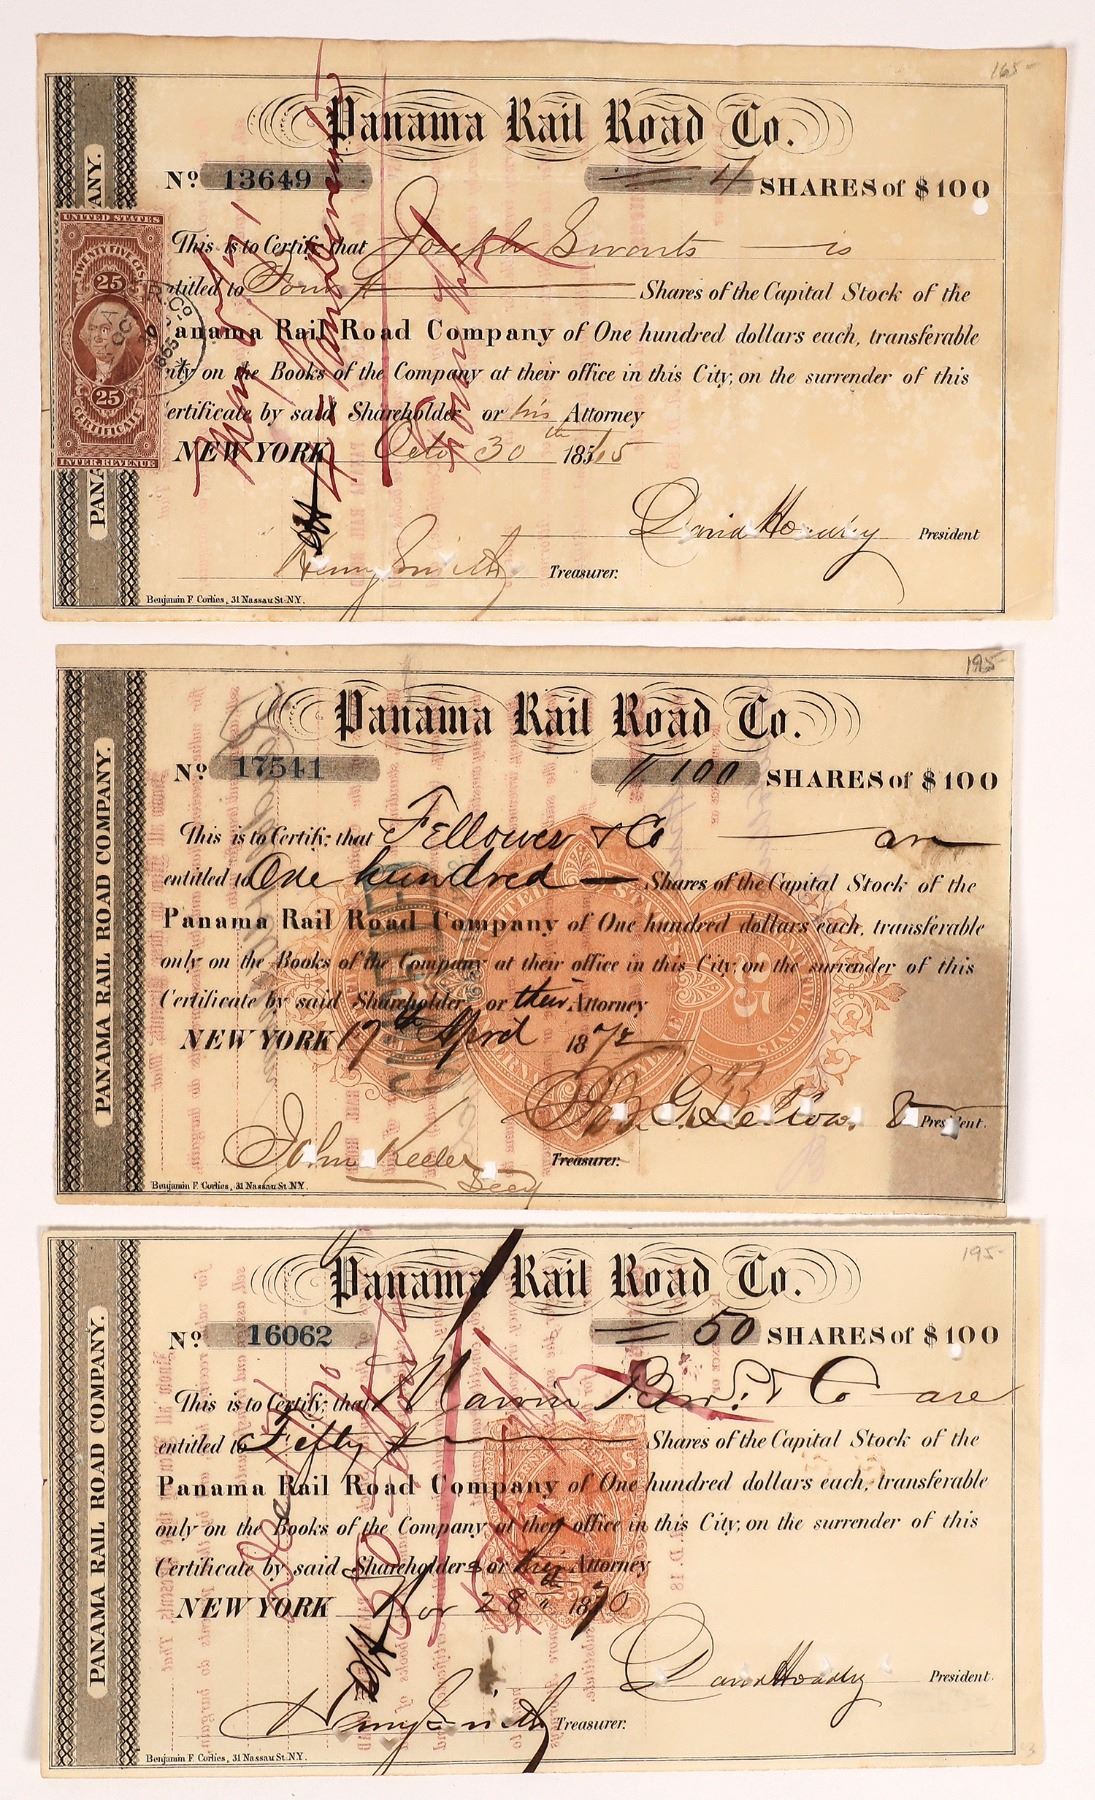 165-
Panama Rail Road Co.
No 13649 4 SHARES of $100
This is to Certify, that Joseph Swarts is
ntitled to Four Shares of the Capital Stock of the
Panama Rail Road Company of One hundred dollars each, transferable
nly on the Books of the Company at their office in this City, on the surrender of this
ertificate by said Shareholder or his Attorney
NEW YORK Octo 30th 1865
David Hoadley President
Henry Smith Treasurer.
Benjamin F. Corlies, 31 Nassau St. N.Y.
ANY.
PANA
UNITED STATES
TWENTY FIVE CTS.
25
25
CERTIFICATE
INTER. REVENUE
195-
Panama Rail Road Co.
No 17541 100 SHARES of $100
This is to Certify, that Fellows & Co are
entitled to One hundred Shares of the Capital Stock of the
Panama Rail Road Company of One hundred dollars each, transferable
only on the Books of the Company at their office in this City, on the surrender of this
Certificate by said Shareholder or their Attorney
NEW YORK 17th April 1872
President.
John Keeler Treasurer.
Benjamin F. Corlies, 31 Nassau St. N.Y.
PANAMA RAIL ROAD COMPANY.
CANCELLED
25
195-
Panama Rail Road Co.
No 16062 50 SHARES of $100
This is to Certify, that Marvin Bros. & Co are
entitled to Fifty Shares of the Capital Stock of the
Panama Rail Road Company of One hundred dollars each, transferable
only on the Books of the Company at their office in this City, on the surrender of this
Certificate by said Shareholders or their Attorney
NEW YORK Nov 28th 1870
David Hoadley President.
Henry Smith Treasurer.
Benjamin F. Corlies, 31 Nassau St. N.Y.
PANAMA RAIL ROAD COMPANY.